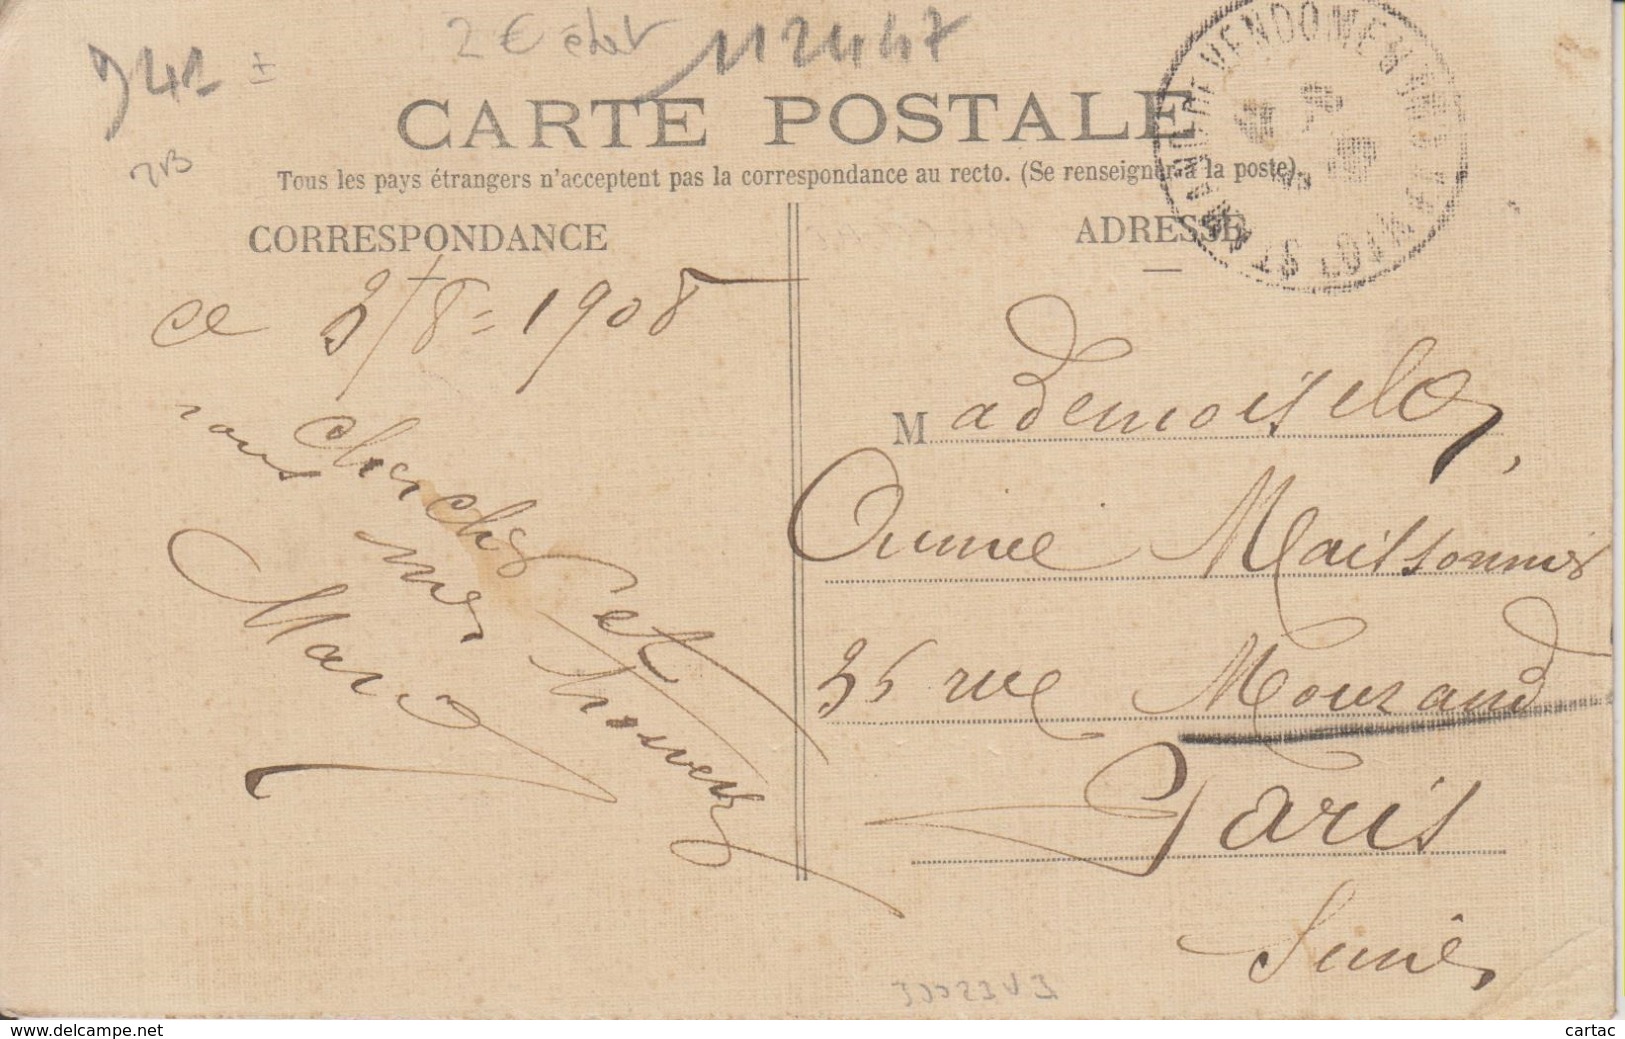 941 ±
2 € état 112447
CARTE POSTALE
Tous les pays étrangers n'acceptent pas la correspondance au recto. (Se renseigner à la poste).
CORRESPONDANCE
ADRESSE
ce 3/8 = 1908
cherches et
vous me trouverez
Marc
Mademoiselle,
Aimée Maissonnier
35 rue Mouzand
Paris
Seine
www.delcampe.net
cartac